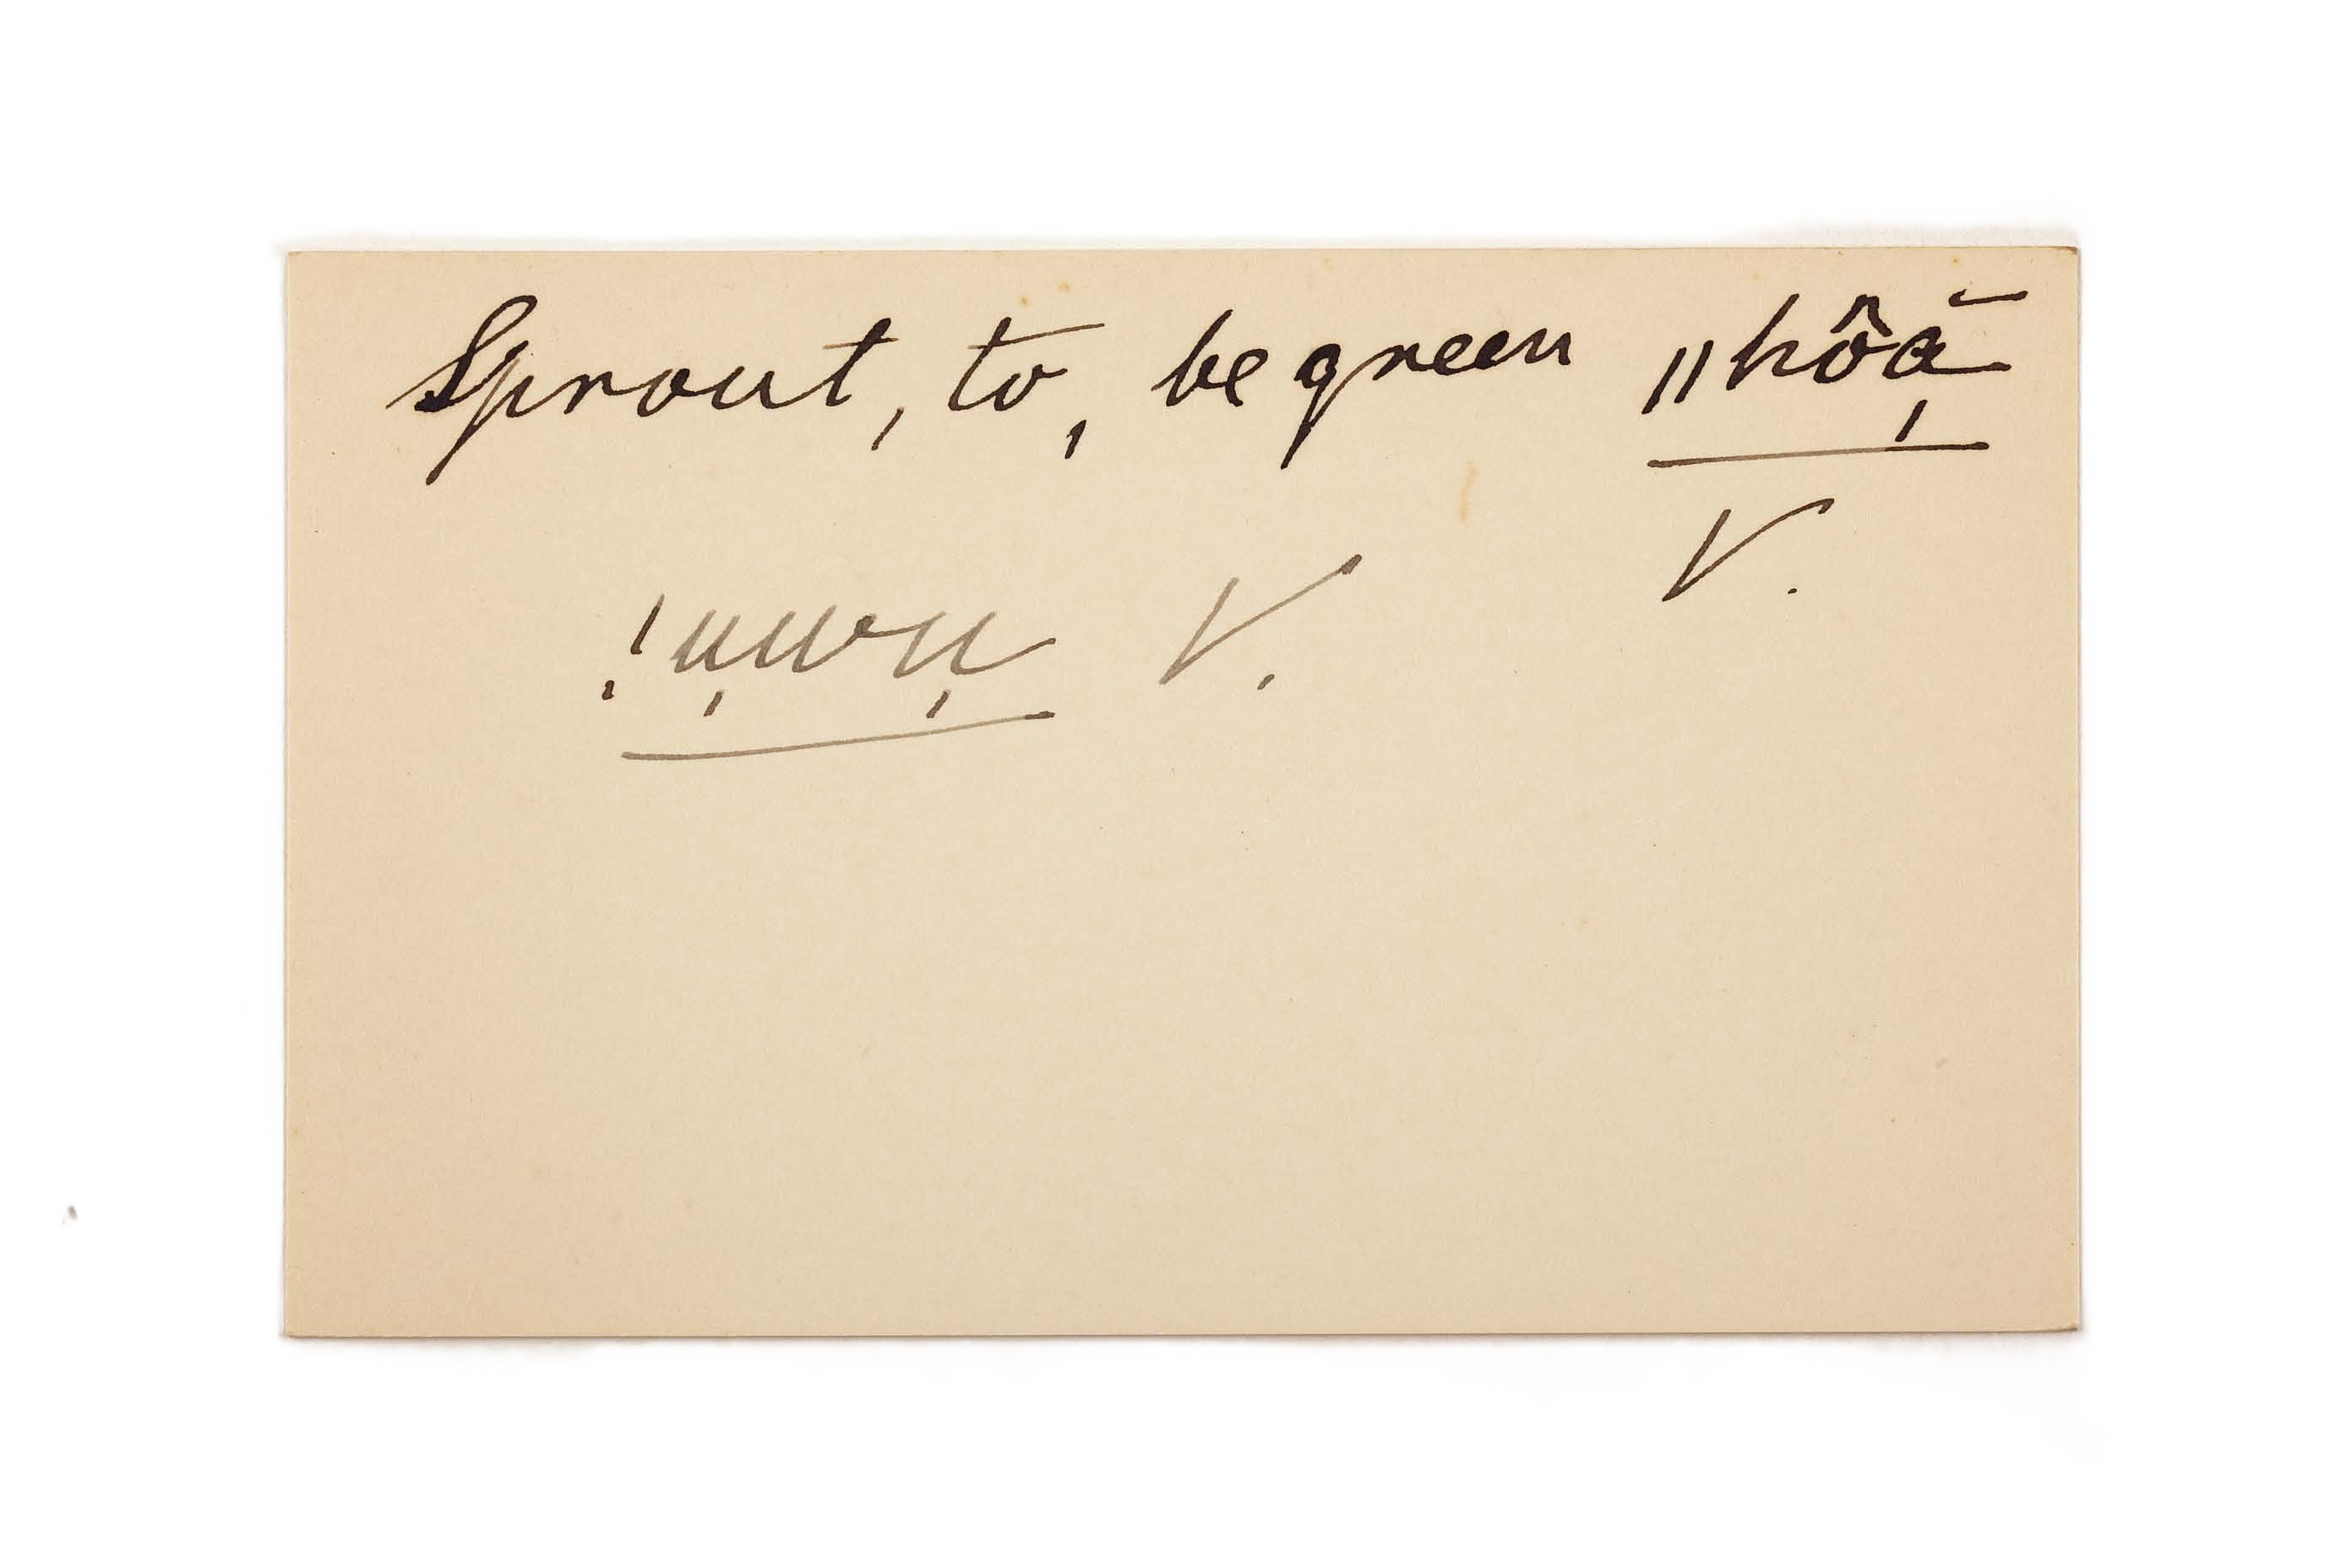 Sprout, to, be green ǁhôā̦
V.
V.